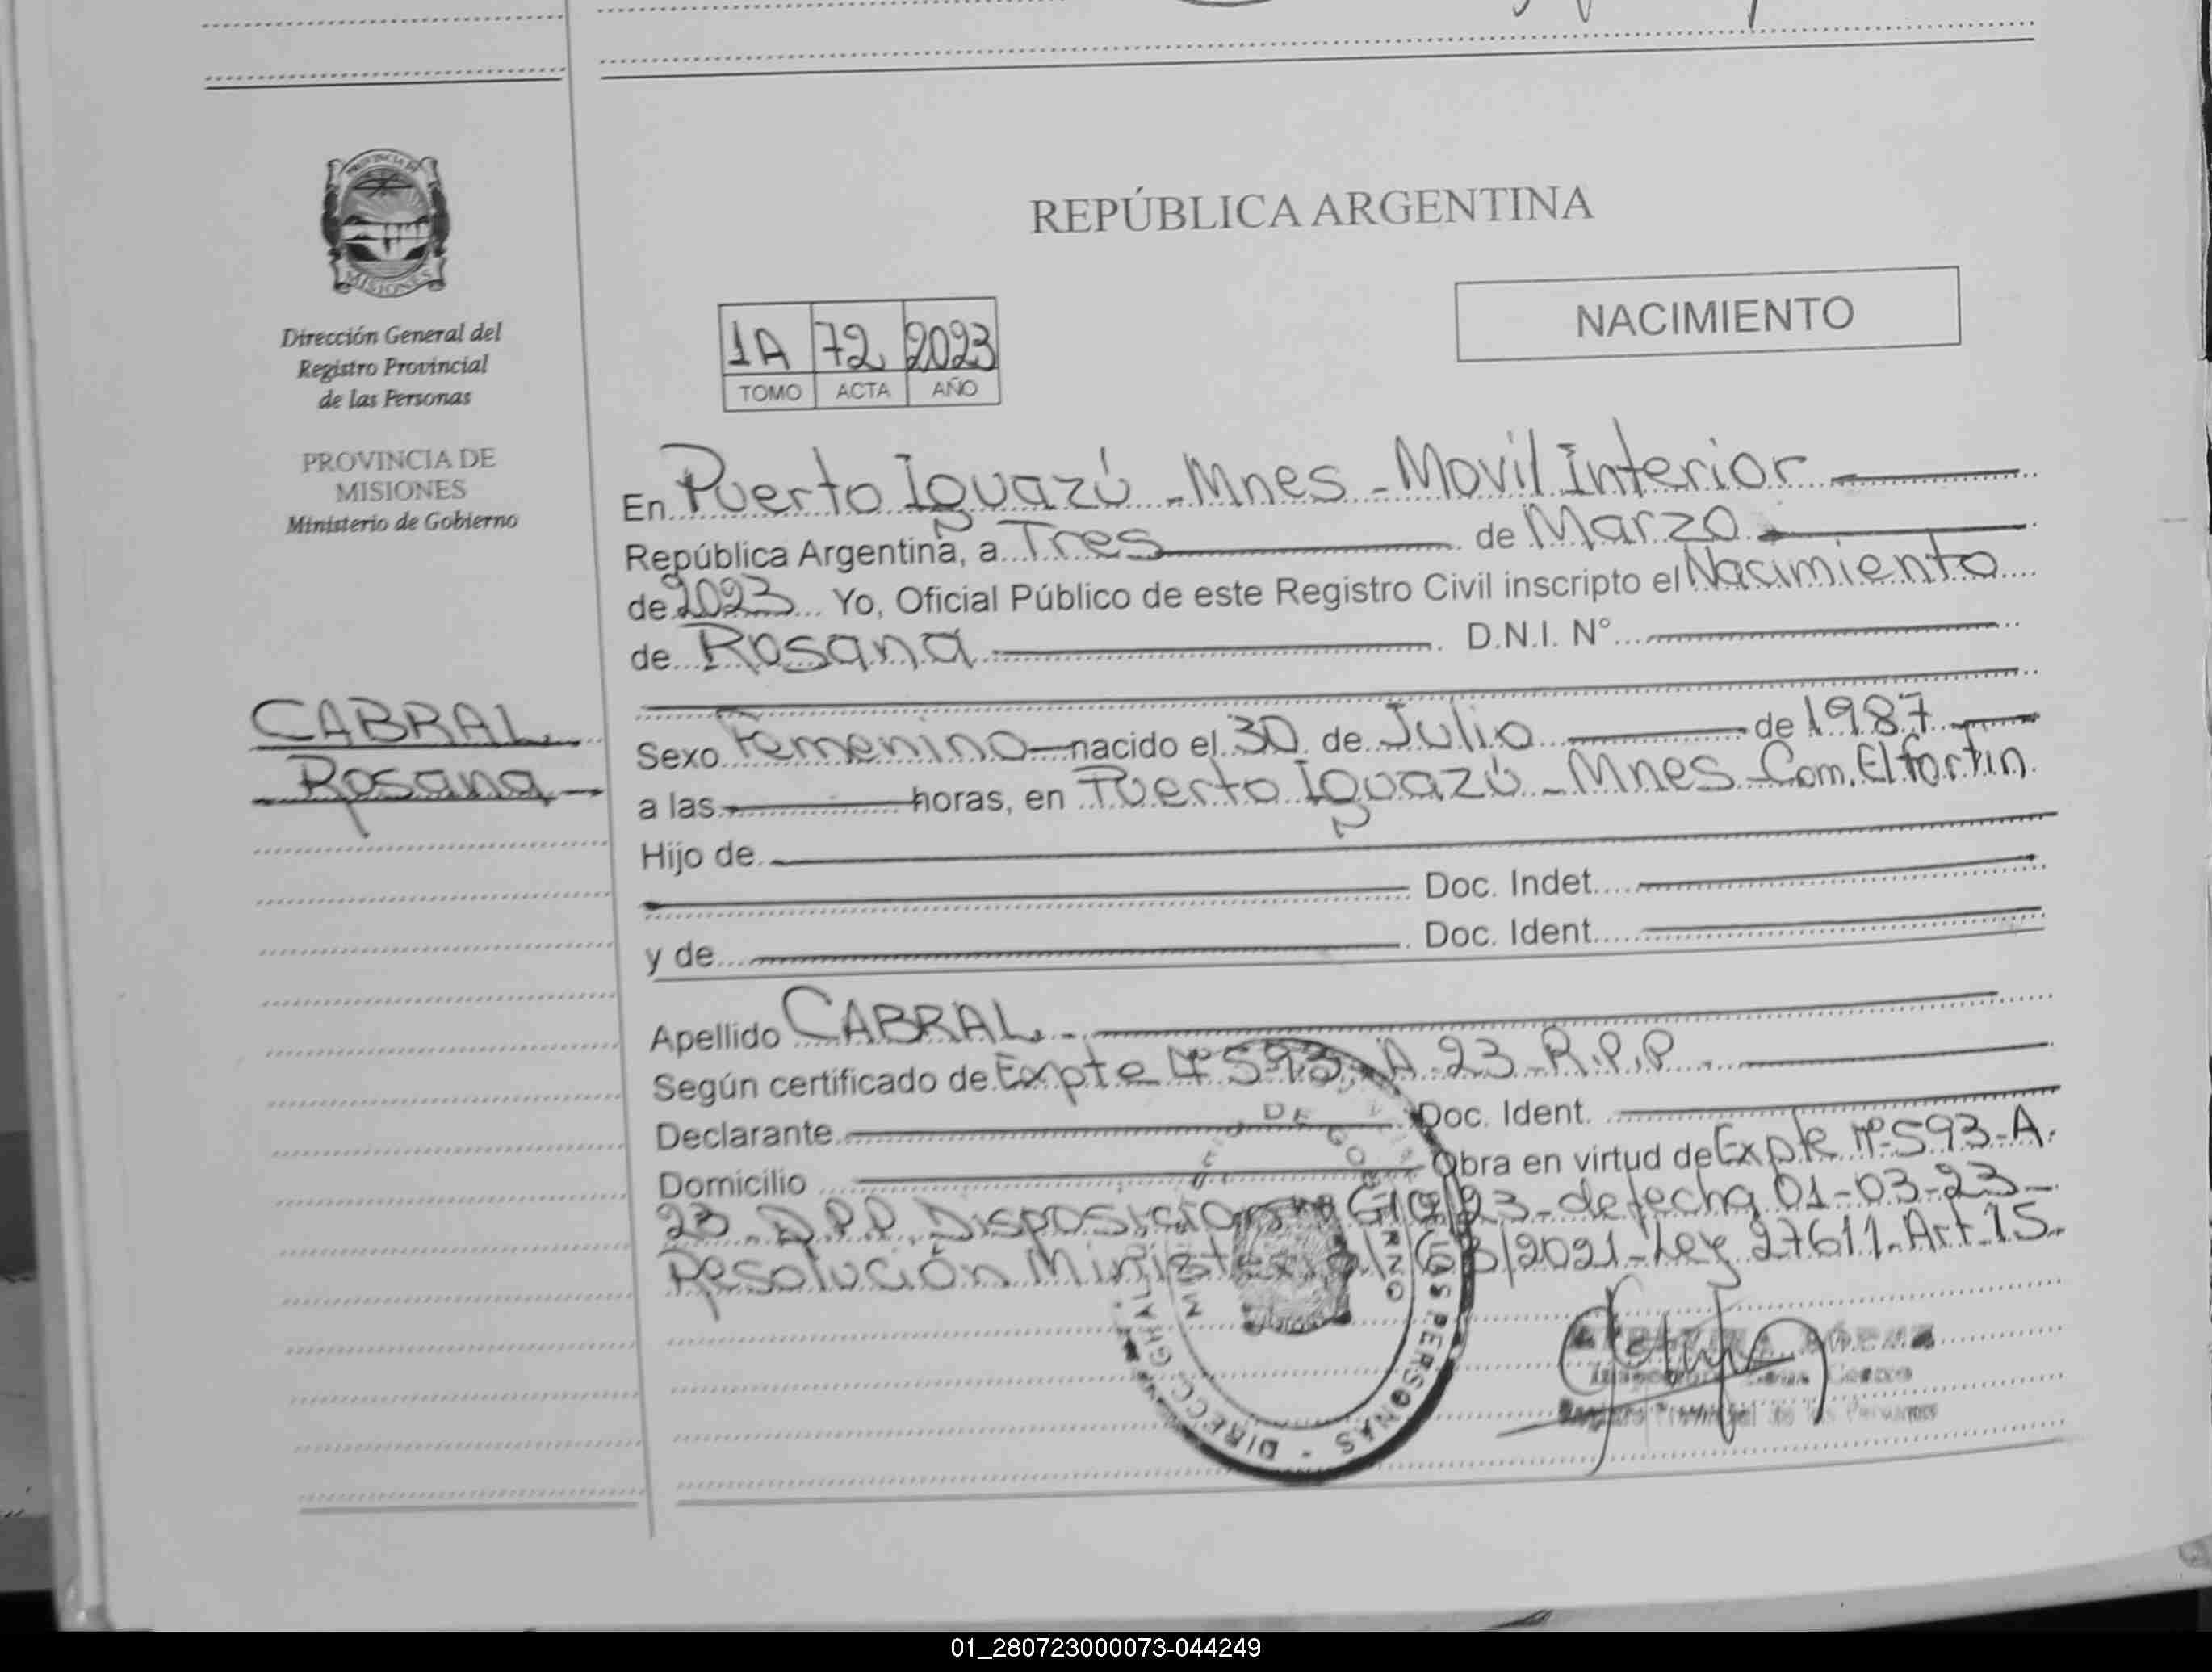 PROVINCIA DE
MISIONES
Dirección General del
Registro Provincial
de las Personas
PROVINCIA DE
MISIONES
Ministerio de Gobierno
CABRAL
Rosana
REPÚBLICA ARGENTINA
NACIMIENTO
1A 72 2023
TOMO ACTA AÑO
En Puerto Iguazú - Mnes - Movil Interior
República Argentina, a Tres de Marzo
de 2023 Yo, Oficial Público de este Registro Civil inscripto el Nacimiento
de Rosana D.N.I. N°
Sexo Femenino nacido el 30 de Julio de 1987
a las horas, en Puerto Iguazú - Mnes - Com. El fortin.
Hijo de
Doc. Indet.
y de Doc. Ident.
Apellido CABRAL.
Según certificado de Expte N° 593-A-23-R.P.P.
Declarante Doc. Ident.
Domicilio Obra en virtud de Expte N° 593-A-
23 Disposición /23- de fecha 01-03-23-
Resolución Ministerial /2021-Ley 27611-Art 15-
DIRECC. GRAL. PERSONAS
01_280723000073-044249